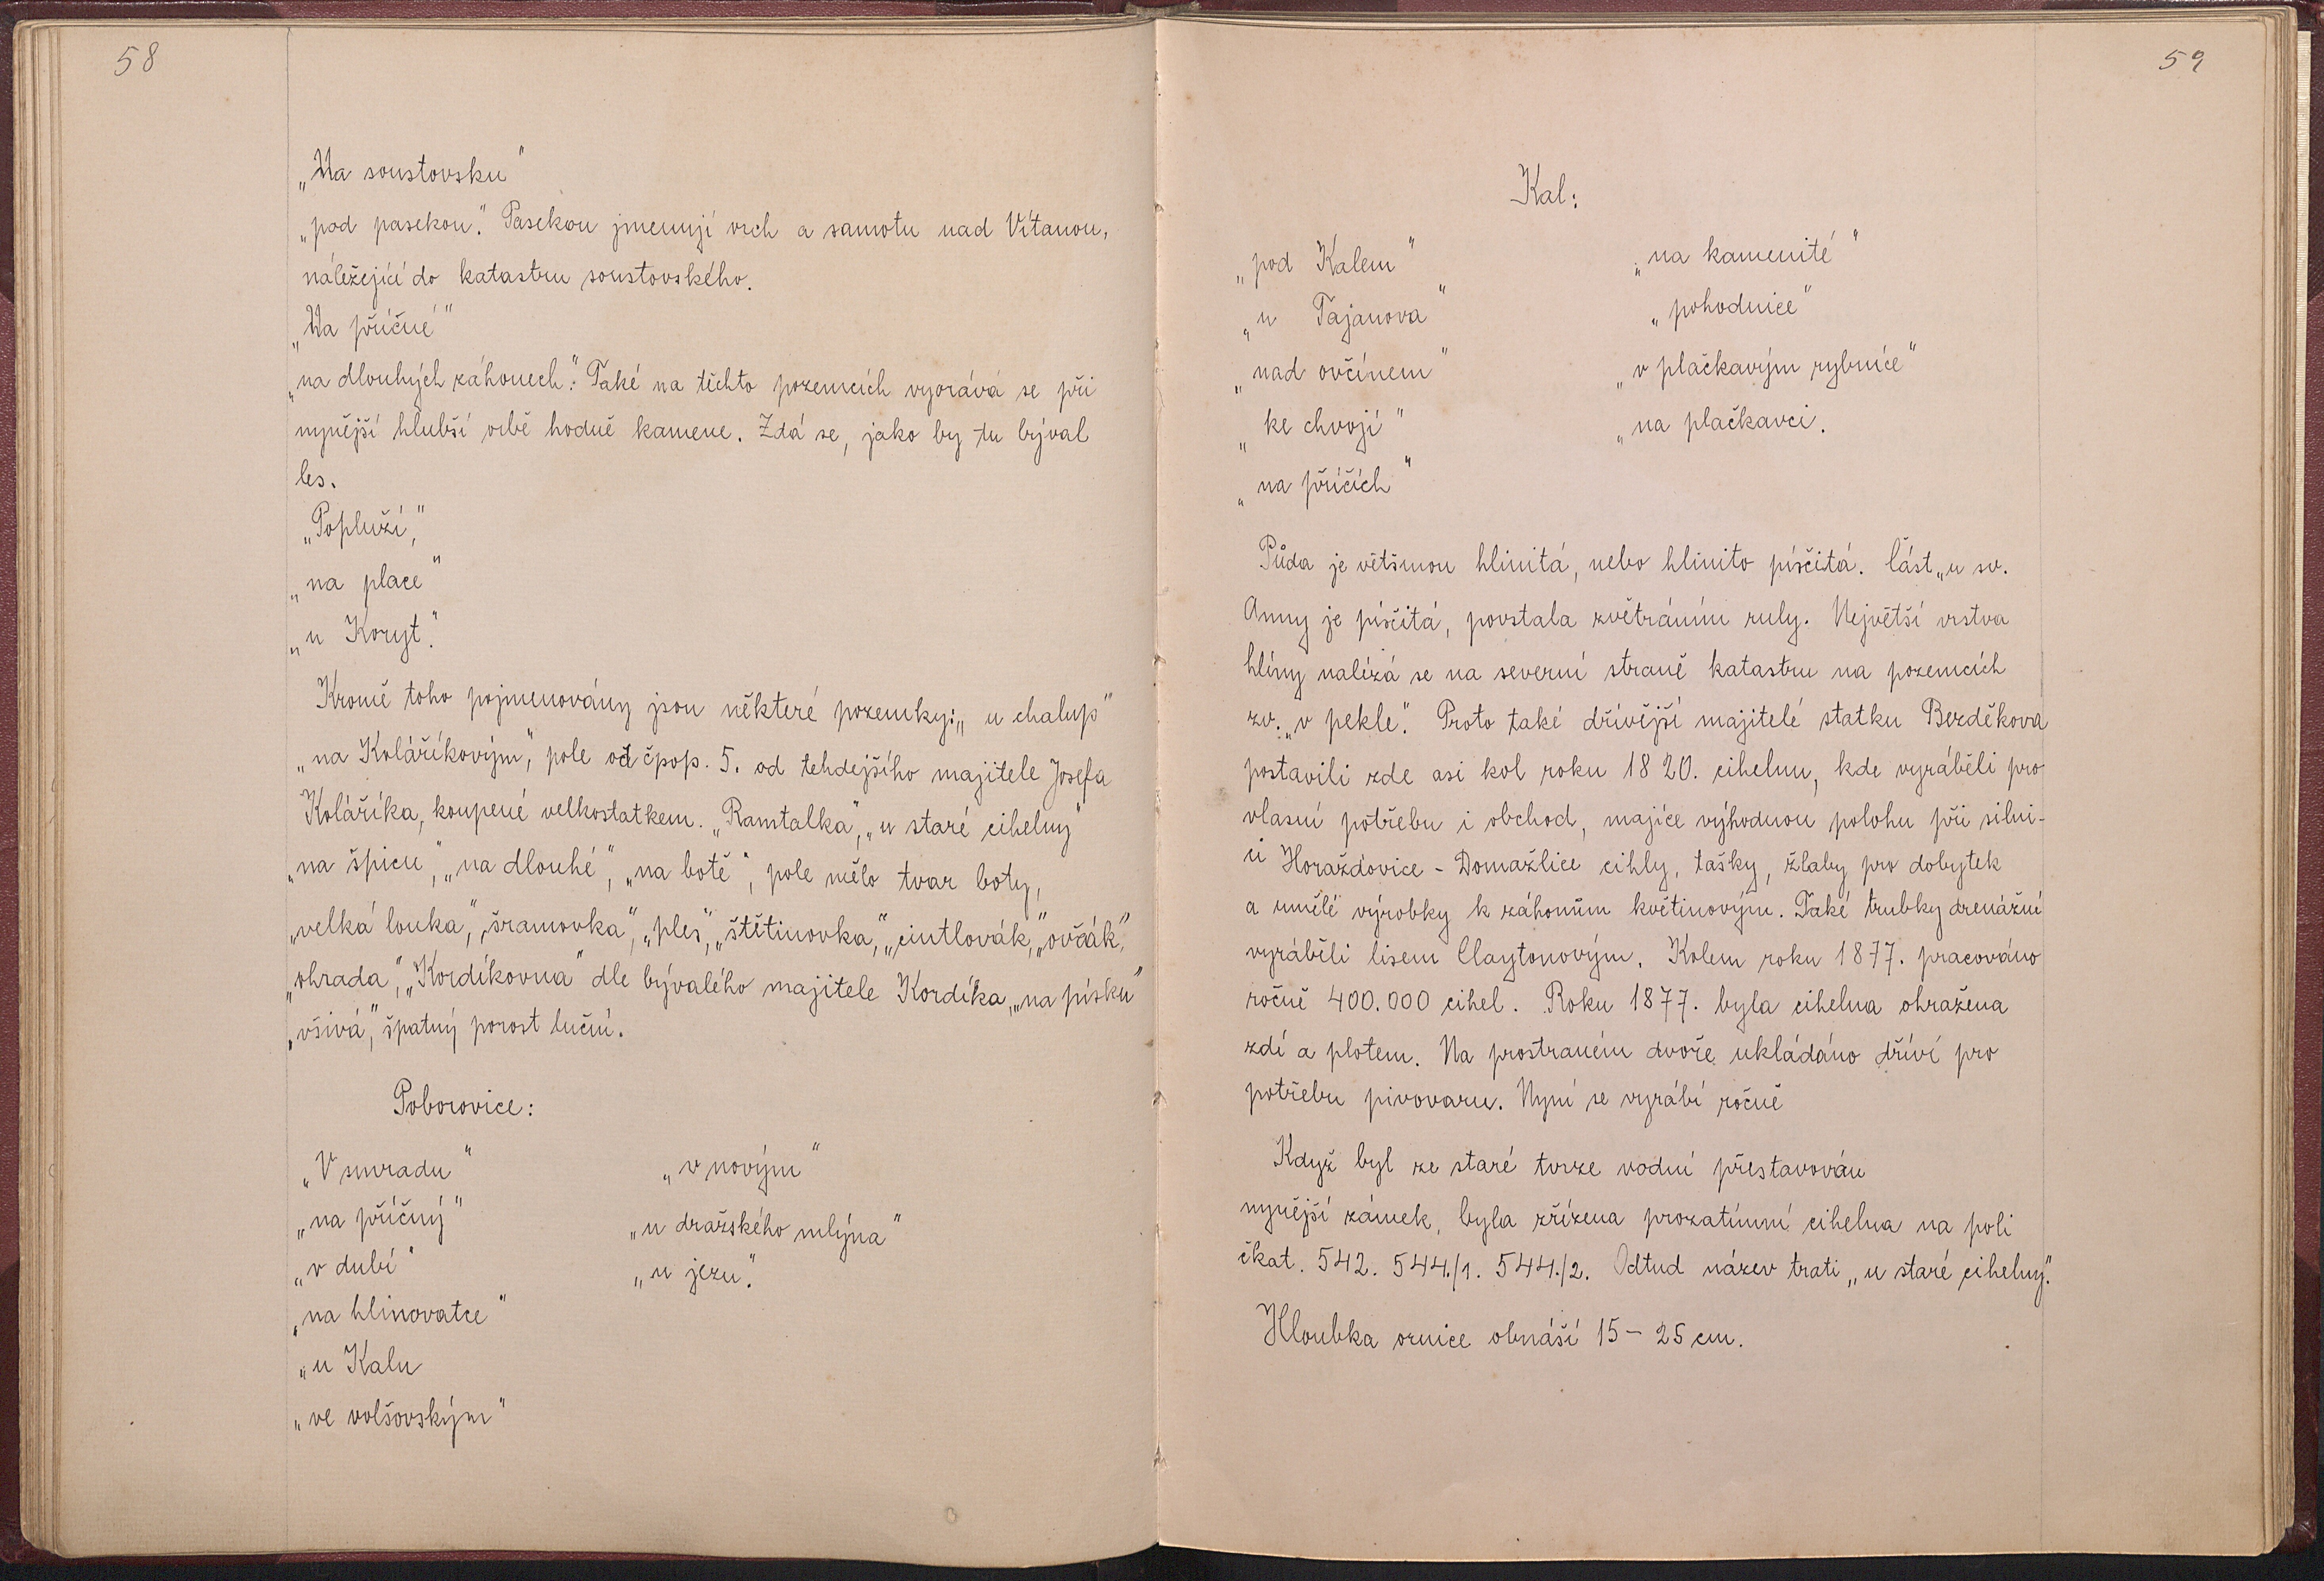 58
„Na soustovsku"
„pod pasekou." Pasekou jmenují vrch a samotu nad Vítanou,
náležející do katastru soustovského.
„Na příčné"
„na dlouhých záhonech." Také na těchto pozemcích vyorává se při
nynější hlubší orbě hodně kamene. Zdá se, jako by tu býval
les.
„Popluží,"
„na place"
„u Koryt."
Kromě toho pojmenovány jsou některé pozemky: „u chalup"
„na Koláříkovým," pole od čpop. 5. od tehdejšího majitele Josefa
Koláříka, koupené velkostatkem. „Ramtalka", „u staré cihelny"
„na špicu", „na dlouhé", „na botě", pole mělo tvar boty,
„velká louka," „šramovka", „ples", „štětinovka," „cintlovák," „ovčák,"
„ohrada," „Kordíkovna" dle bývalého majitele Kordíka, „na písku"
„všivá," špatný porost luční.
Poborovice:
„V smradu" „v novým"
„na příčný" „u dražského mlýna"
„v dubí" „u jezu."
„na hlinovatce"
„u Kalu
„ve volšovským"
59
Kal:
„pod Kalem" „na kamenité"
„u Tajanova" „pohodnice"
„nad ovčínem" „v plačkavým rybníce"
„ke chvojí" „na plačkavci.
„na příčích"
Půda je většinou hlinitá, nebo hlinito písčitá. Část „u sv.
Anny je písčitá, povstala zvětráním ruly. Největší vrstva
hlíny nalézá se na severní straně katastru na pozemcích
zv. „v pekle." Proto také dřívější majitelé statku Bezděkova
postavili zde asi kol roku 1820. cihelnu, kde vyráběli pro
vlasní potřebu i obchod, majíce výhodnou polohu při silni-
ci Horažďovice - Domažlice cihly, tašky, žlaby pro dobytek
a umělé výrobky k záhonům květinovým. Také trubky drenážní
vyráběli lisem Claytonovým. Kolem roku 1877. pracováno
ročně 400.000 cihel. Roku 1877. byla cihelna ohražena
zdí a plotem. Na prostraném dvoře ukládáno dříví pro
potřebu pivovaru. Nyní se vyrábí ročně
Když byl ze staré tvrze vodní přestavován
nynější zámek, byla zřízena prozatímní cihelna na poli
čkat. 542. 544./1. 544./2. Odtud název trati „u staré cihelny."
Hloubka ornice obnáší 15 - 25 cm.